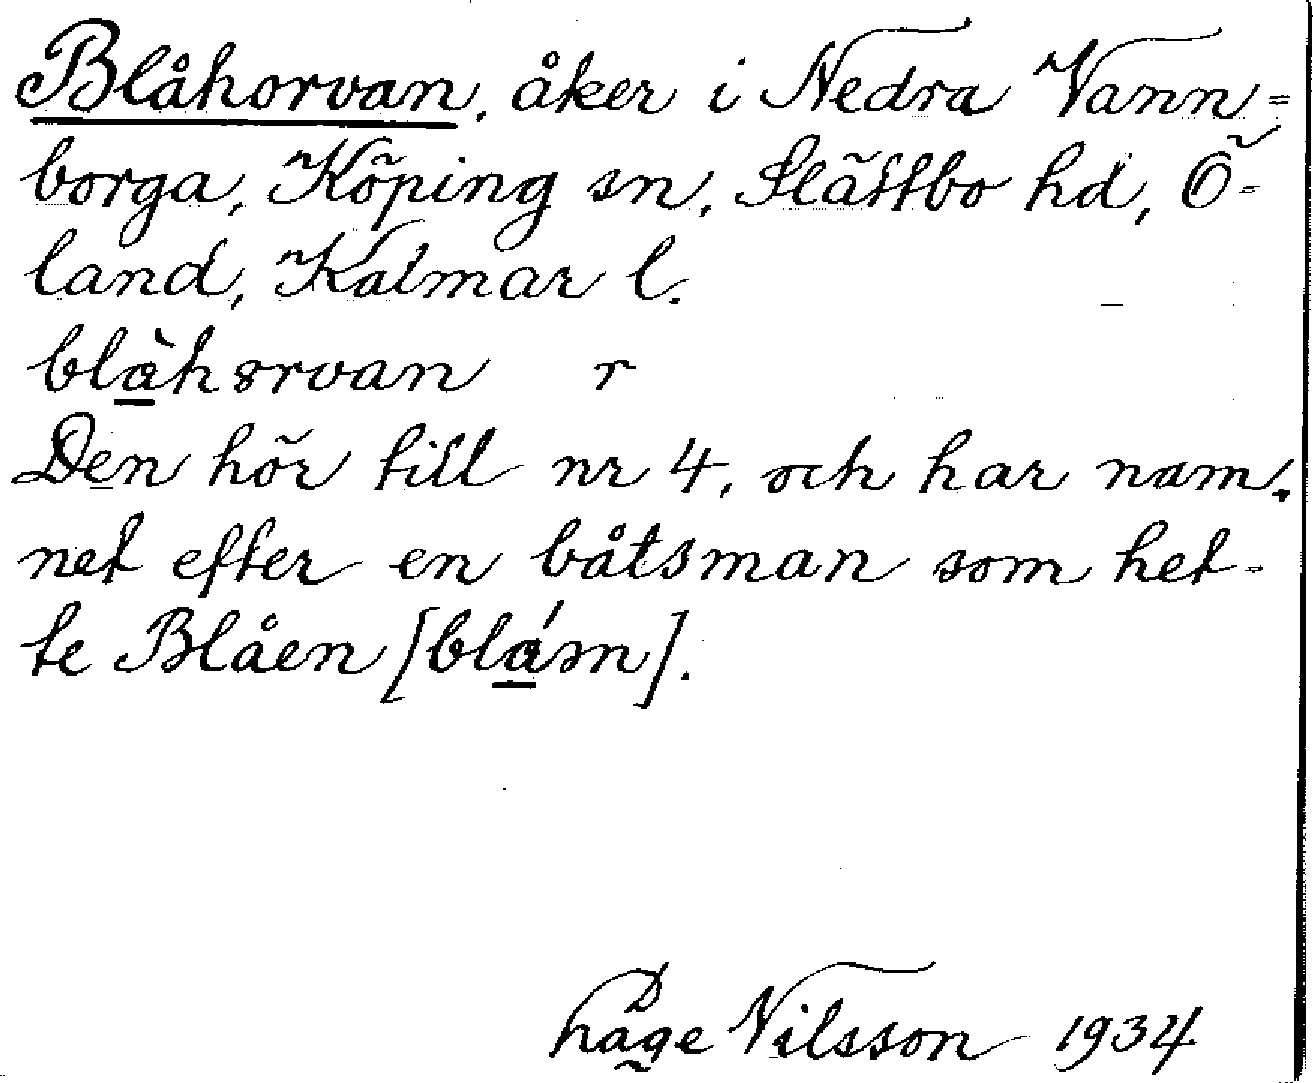 Blåhorvan, åker i Nedra Vann=
borga, Köping sn, Slättbo hd, Ö-
land, Kalmar l.
blàhorvan r
Den hör till nr 4, och har nam-
net efter en båtsman som het-
te Blåen [blám].
Nilsson 1934